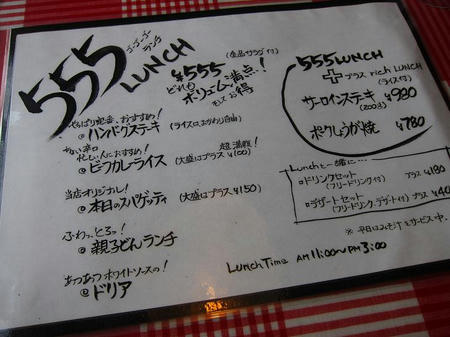 ゴーゴーゴー ランチ
555 LUNCH
(全品サラダ付)
¥555
どれも
ボリューム満点!
モスお得
やっぱり定番、おすすめ!
@ハンバーグステーキ (ライスはおかわり自由)
忙しい人におすすめ! 超満腹!
@ビーフカレーライス (大盛はプラス¥100)
当店オリジナル!
@本日のスパゲッティ (大盛はプラス¥150)
ふわっ、とろっ!
@親子どんランチ
あつあつホワイトソースの!
@ドリア
555LUNCH
プラス rich LUNCH
(ライス付)
サーロインステーキ ¥980
(200g)
ポークしょうが焼 ¥780
Lunchと一緒に…
ドリンクセット プラス¥180
(フリードリンク付)
デザートセット
(フリードリンク、デザート付) プラス¥40
※平日はみそ汁もサービス中。
LUNCH TIME AM 11:00~PM 3:00